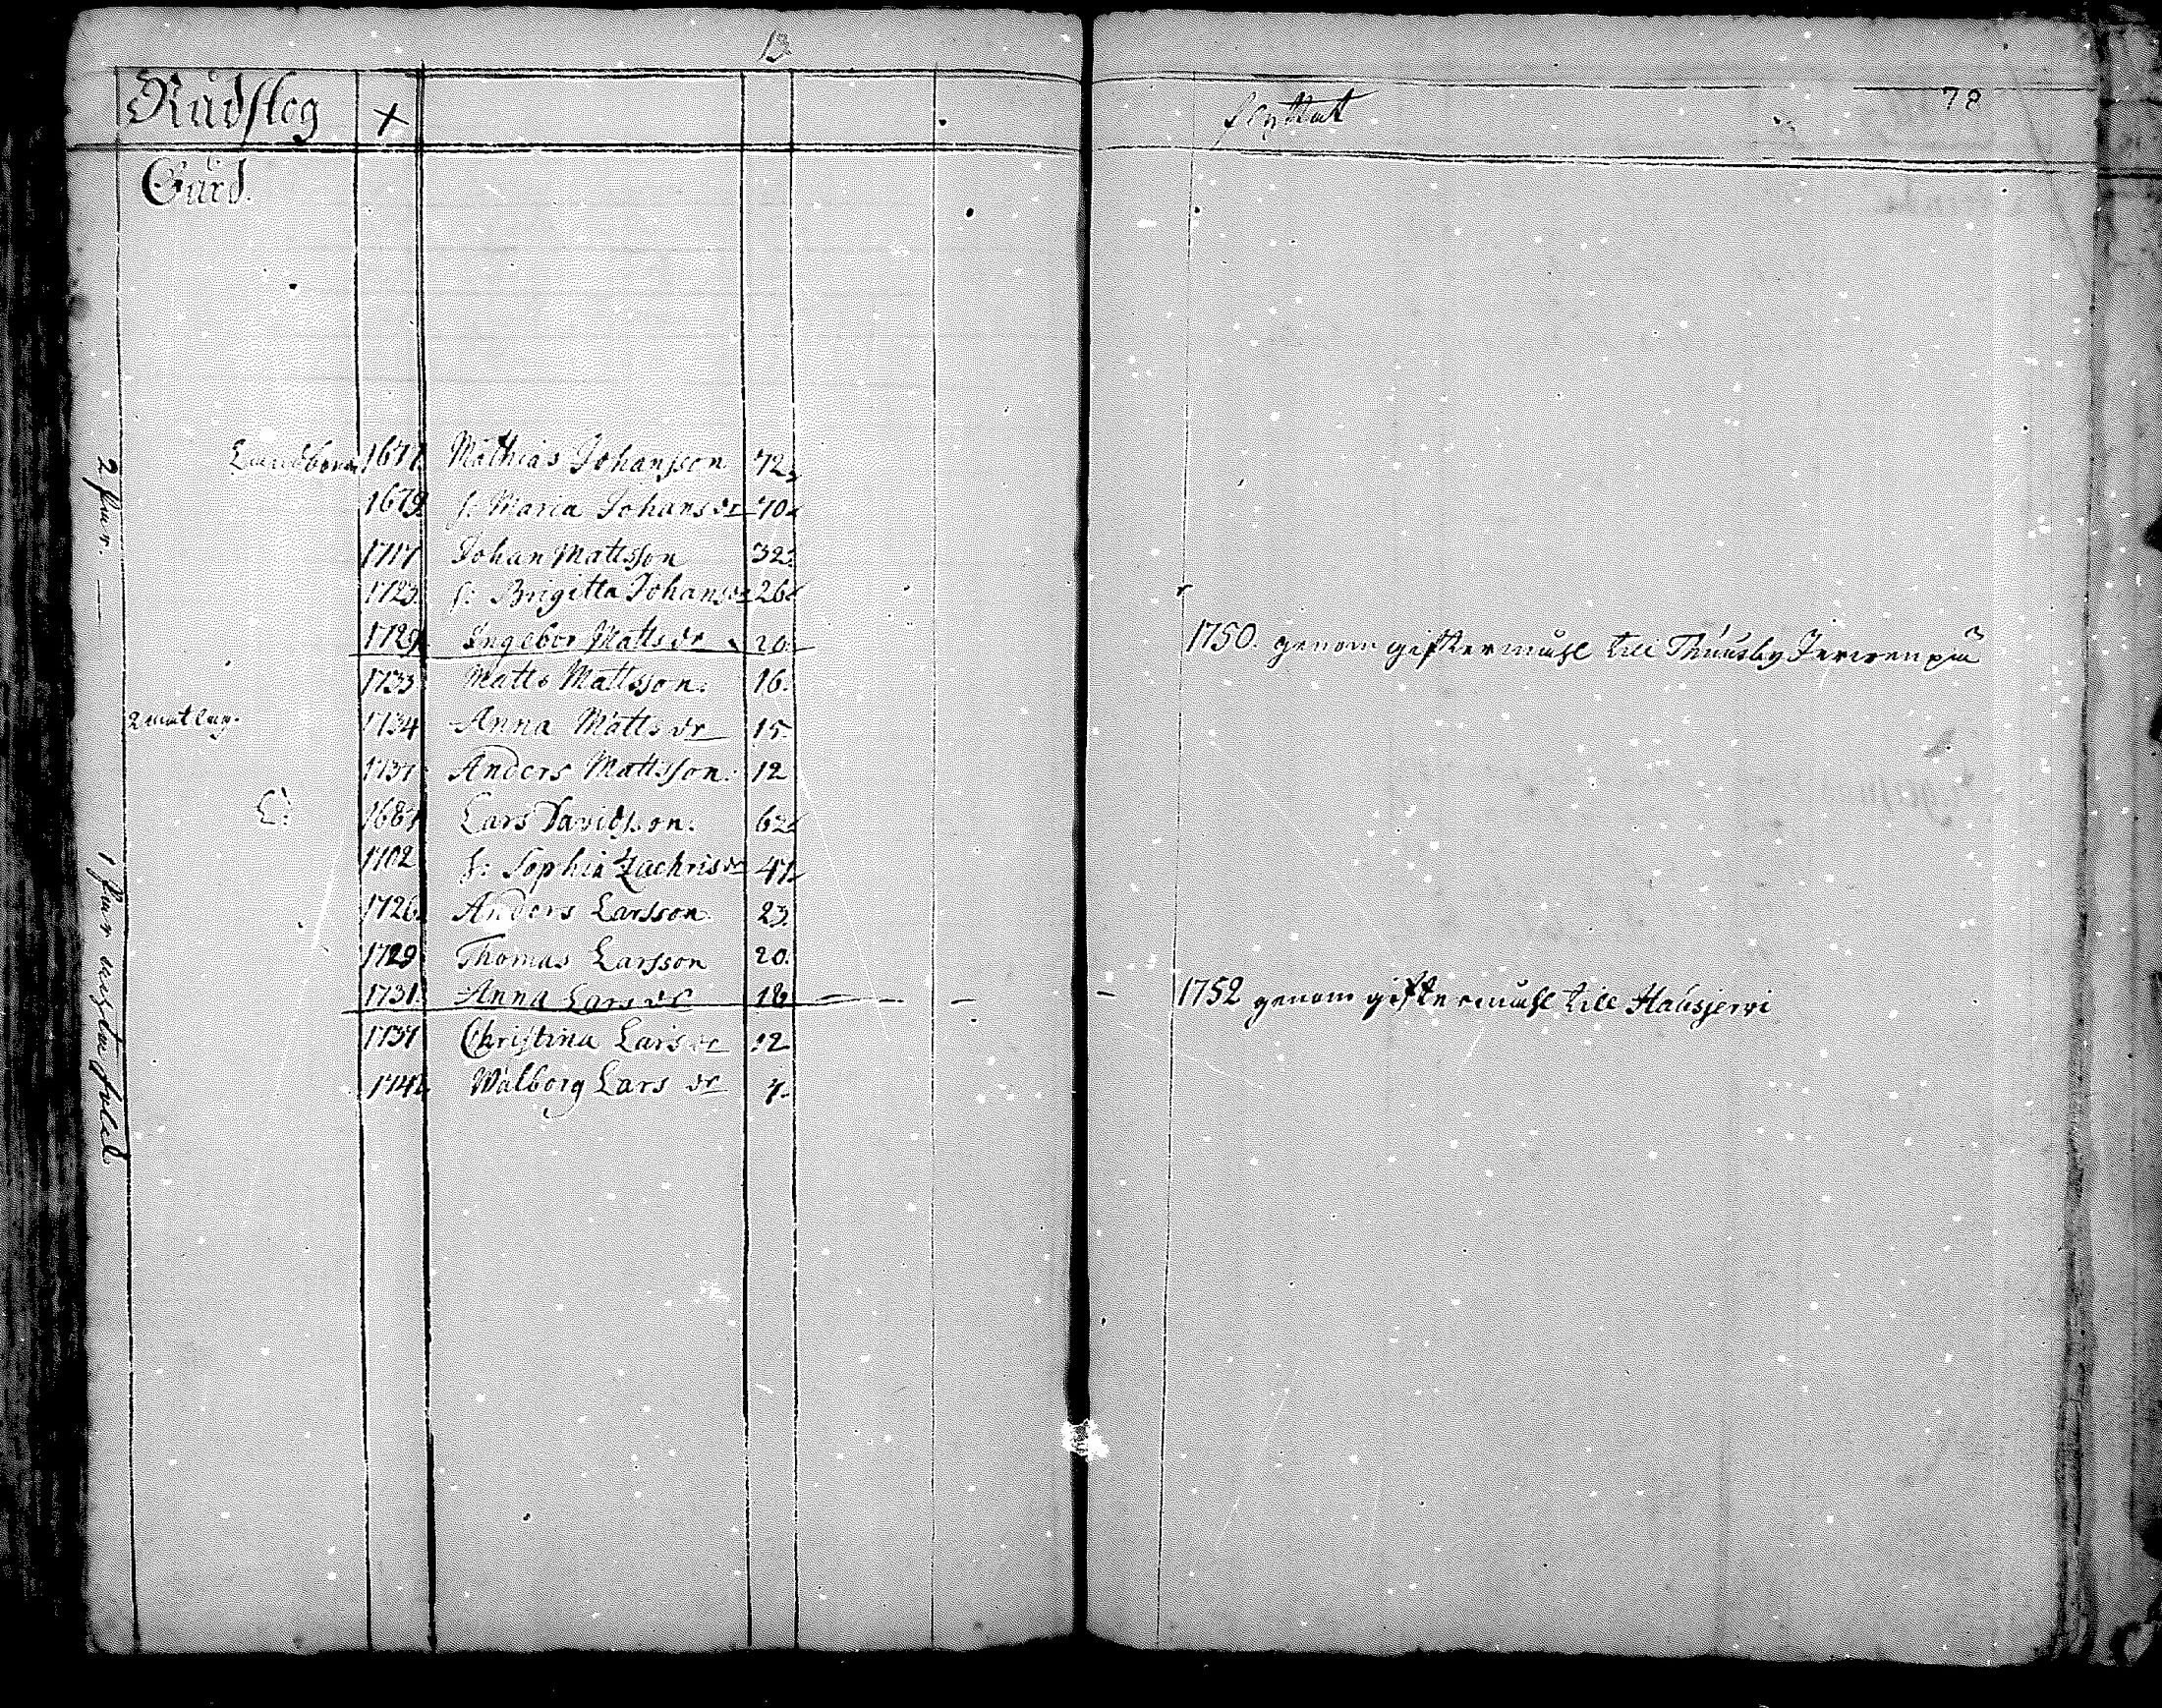 13
Rudskog + flyttat 78
Gård.
Landbonde 1677. Mathias Johansson 72.
1679. h: Maria Johans dr 70.
1717 Johan Mattsson 32.
1723. h: Brigitta Johans dr 26.
1729. Ingebor Matts dr 20. 1750. genom giftermåhl till Thuusby Jerwenpä
1733 Matts Mattsson. 16.
2 matlag. 1734 Anna Matts dr 15.
1737 Anders Mattsson. 12
L: 1687 Lars Davidsson. 62.
1702 h: Sophia Zachris dr 47.
1726. Anders Larsson. 23.
1729 Thomas Larsson 20.
1731. Anna Lars dr 18 – – – – 1752 genom giftermåhl till Hausjerwi
1737 Christina Lars dr 12
1742. Walborg Lars dr 7.
2 par. —
1 par